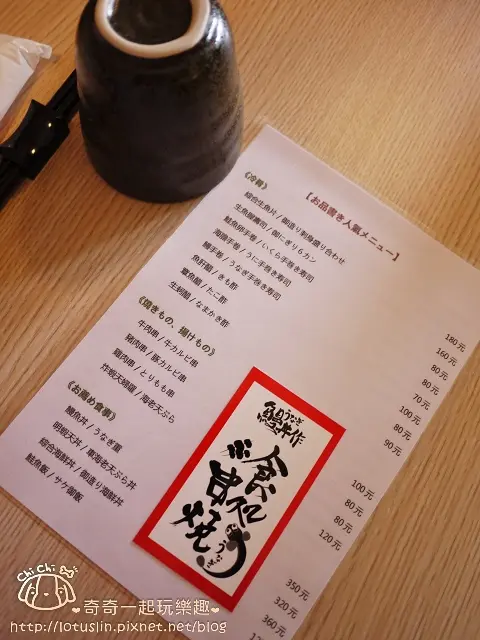 【お品書き人氣メニュー】
《冷菜》
綜合生魚片 / 御造り刺身盛り合わせ 180元
生魚握壽司 / 御にぎり6カン 160元
鮭魚卵手卷 / いくら手巻き寿司 80元
海膽手卷 / うに手巻き寿司 80元
鰻手卷 / うなぎ手巻き寿司 70元
魚肝醋 / きも酢 100元
章魚醋 / たこ酢 80元
生蚵醋 / なまかき酢 90元
《燒きもの、揚けもの》
牛肉串 / 牛カルビ串 100元
豬肉串 / 豚カルビ串 80元
雞肉串 / とりもも串 80元
炸蝦天婦羅 / 海老天ぷら 120元
《お薦め食事》
鰻魚丼 / うなぎ重 350元
明蝦天丼 / 車海老天ぷら丼 320元
綜合海鮮丼 / 御造り海鮮丼 360元
鮭魚飯 / サケ御飯
うなぎ
鰻丼作
食処
串焼
うなぎ
Chi Chi
奇奇一起玩樂趣
http://lotuslin.pixnet.net/blog